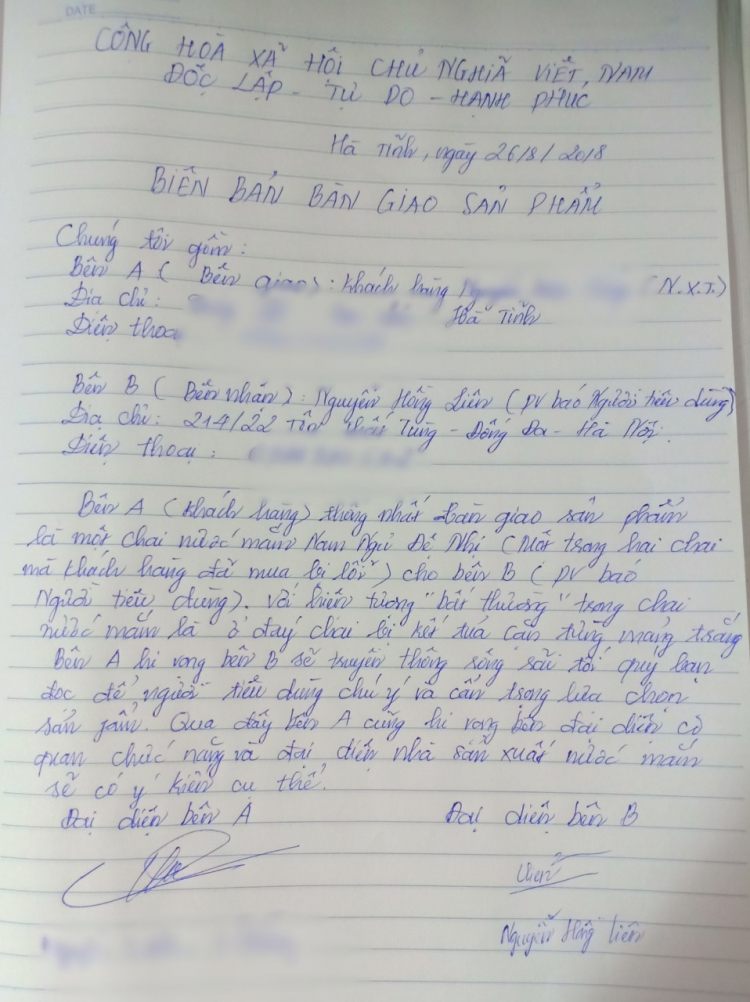 DATE
CỘNG HOÀ XÃ HỘI CHỦ NGHĨA VIỆT NAM
ĐỘC LẬP - TỰ DO - HẠNH PHÚC
Hà Tĩnh, ngày 26/8/2018
BIÊN BẢN BÀN GIAO SẢN PHẨM
Chúng tôi gồm:
Bên A ( Bên giao): khách hàng (N.X.T.)
Địa chỉ: Hà Tĩnh
Điện thoại
Bên B ( Bên nhận): Nguyễn Hồng Liên (PV báo Người tiêu dùng)
Địa chỉ: 214/22 Tôn Thất Tùng - Đống Đa - Hà Nội.
Điện thoại:
Bên A (khách hàng) thống nhất bàn giao sản phẩm
là một chai nước mắm Nam Ngư Đệ Nhị (Một trong hai chai
mà khách hàng đã mua bị lỗi) cho bên B ( PV báo
Người tiêu dùng). Với hiện tượng "bất thường" trong chai
nước mắm là ở đáy chai bị kết tủa cặn từng mảng trắng
Bên A hi vọng bên B sẽ truyền thông rộng rãi tới quý bạn
đọc để người tiêu dùng chú ý và cẩn trọng lựa chọn
sản phẩm. Qua đây bên A cũng hi vọng bên đại diện cơ
quan chức năng và đại diện nhà sản xuất nước mắm
sẽ có ý kiến cụ thể.
Đại diện bên A Đại diện bên B
Liên
Nguyễn Hồng Liên